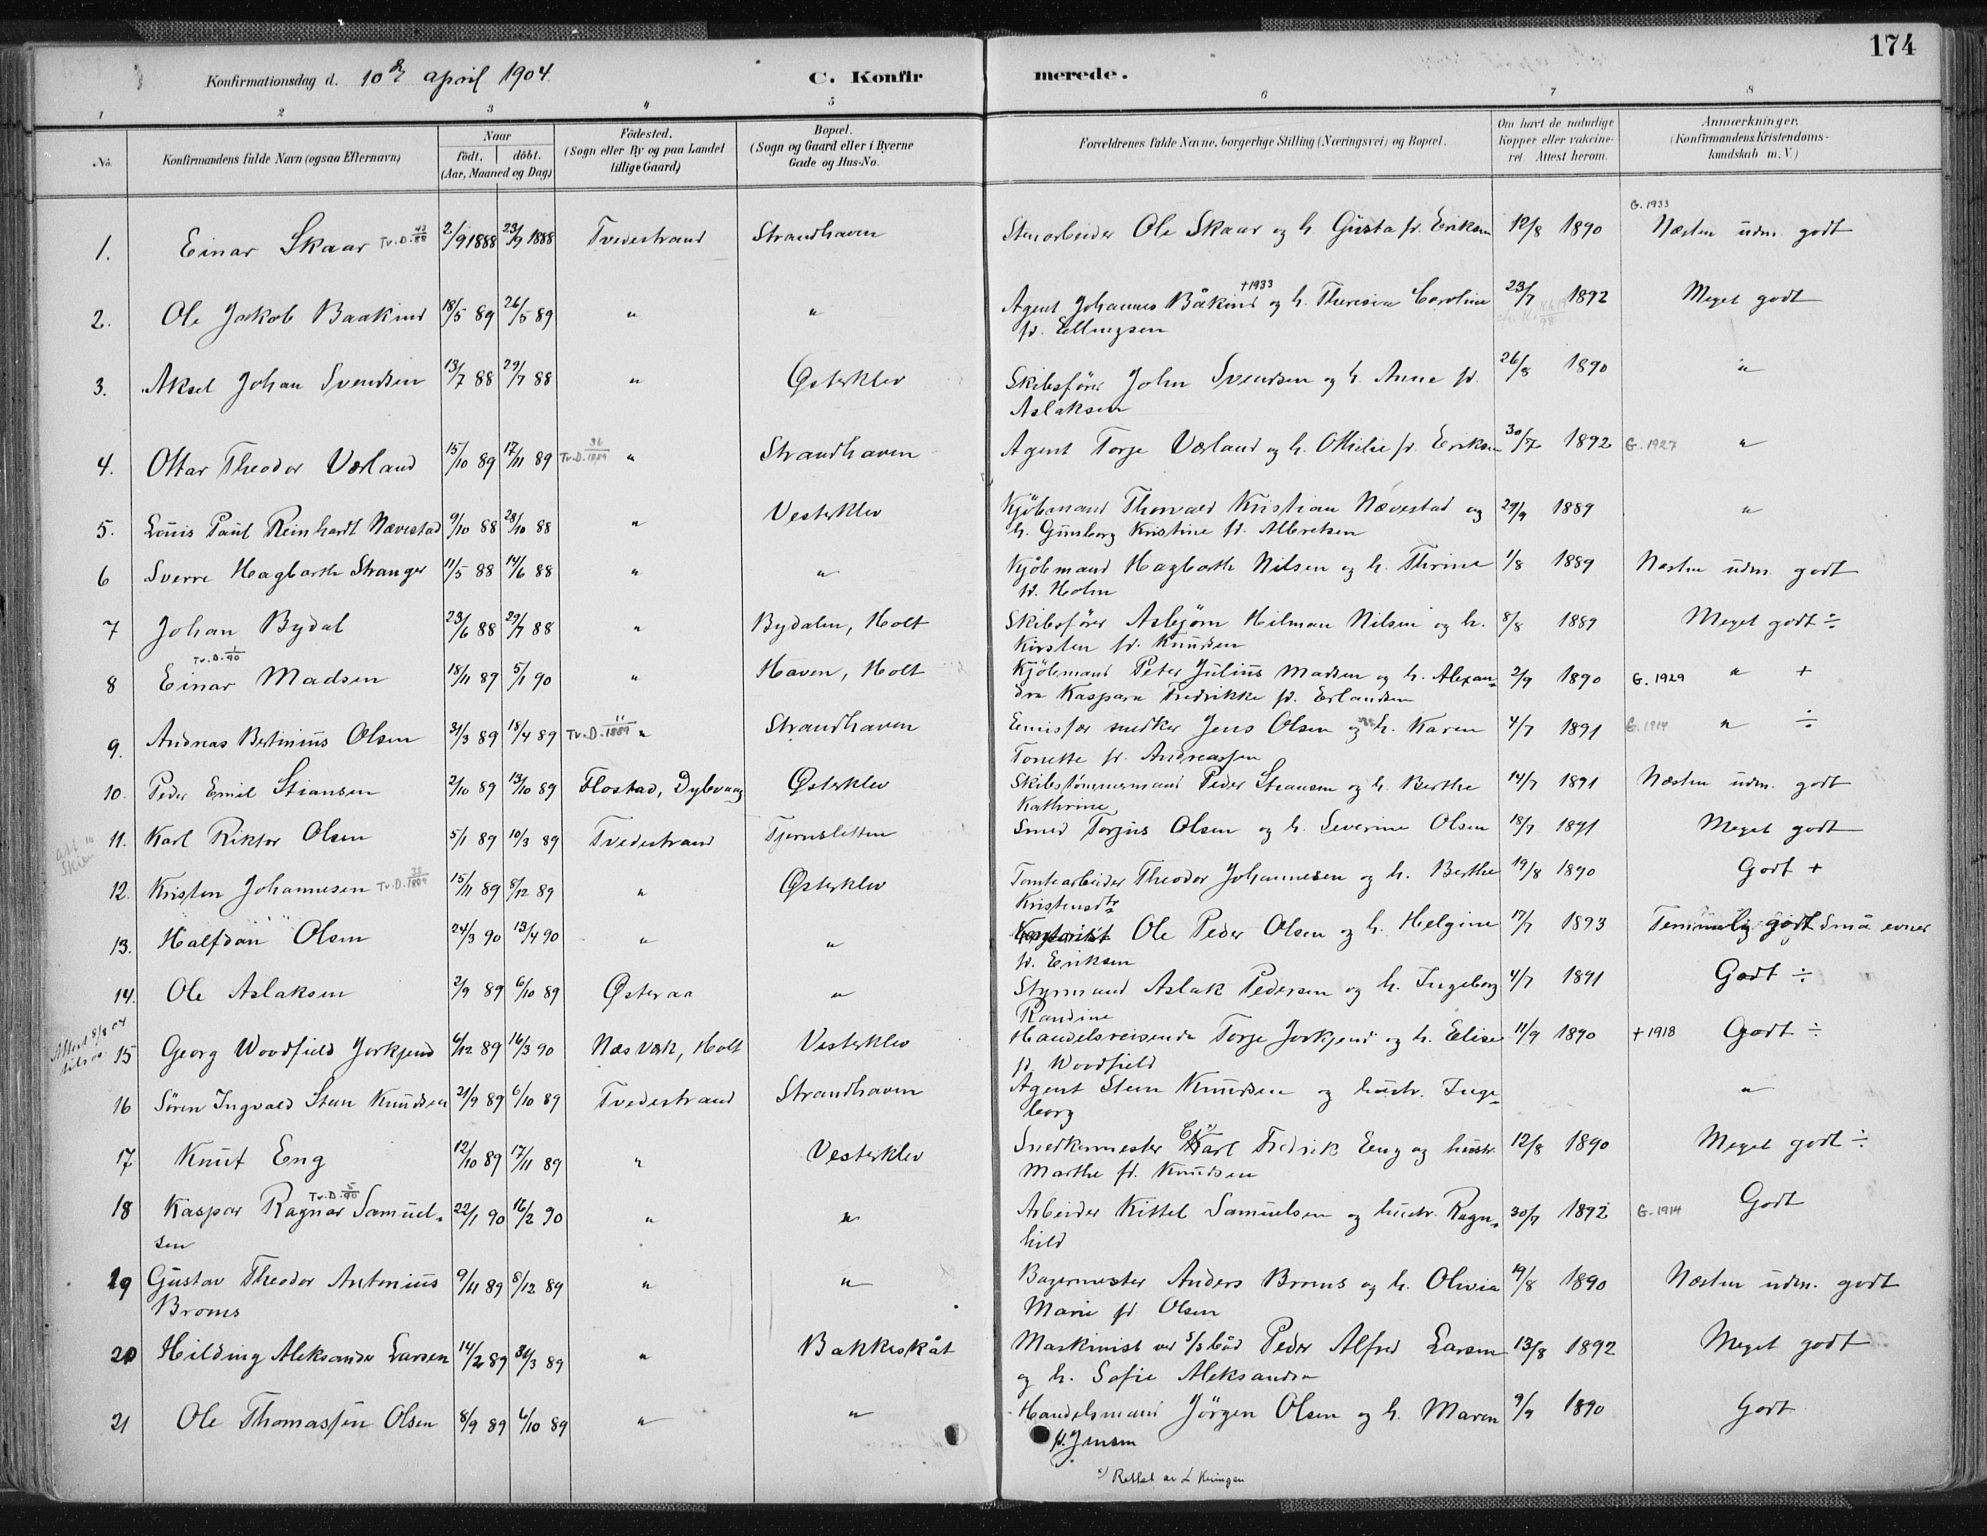 174
Konfirmationsdag d. 10de april 1904. C. Konfirmerede.
1 2 3 4 5 6 7 8
No.
Konfirmandens fulde Navn (ogsaa Efternavn)
Naar
födt. döbt.
(Aar, Maaned og Dag)
Födested.
(Sogn eller By og paa Landet
tillige Gaard)
Bopæl.
(Sogn og Gaard eller i Byerne
Gade og Hus-No.
Forældrenes fulde Navne, borgerlige Stilling (Næringsvei) og Bopæl.
Om havt de naturlige
Kopper eller vakcine-
ret. Attest herom.
Anmærkninger.
(Konfirmandens Kristendoms-
kundskab m. V.)
G. 1933
1. Einar Skaar Tv.D. 2/9 1888 23/9 1888 Tvedestrand Strandhaven Stenarbeider Ole Skaar og h. Gusta f. Eriksen 12/8 1890 Næsten udm. godt
†1933
2. Ole Jakob Baakind 18/5 89 26/5 89 " " Agent Johannes Båkind og h. Theresia Caroline 23/7 1892 Meget godt
f. Ellingsen
3. Aksel Johan Svendsen 13/7 88 29/7 88 " Østerklev Skibsfører John Svendsen og h. Anne f. 26/8 1890 "
Aslaksen
4. Ottar Theodor Værland 15/10 89 17/11 89 Tv.D. 36/1889 " Strandhaven Agent Torje Værland og h. Othilie f. Eriksen 30/7 1892 G. 1927 "
5. Louis Paul Reinhardt Nævestad 9/10 88 28/10 88 " Vesterklev Kjöbmand Thorvald Kristian Nævestad og 29/9 1889 "
h. Gunborg Kristine f. Albretsen
6 Sverre Hagbarth Stranger 11/5 88 14/6 88 " " Kjøbmand Hagbarth Nilsen og h. Thrine 1/8 1889 Næsten udm. godt
f. Holm
7 Johan Bydal 23/6 88 29/7 88 " Bydalen, Holt Skibsfører Asbjørn Hilman Nilsen og h. 8/8 1889 Meget godt ÷
Kirsten f. Knudsen
Tv.D. 1/90
8 Einar Madsen 18/11 89 5/1 90 " Haven, Holt Kjöbmand Peter Julius Madsen og h. Alexan- 2/9 1890 G. 1929 " +
dra Kaspara Fredrikke f. Erlandsen
9. Andreas Bertinius Olsen 31/3 89 18/4 89 Tv.D. 11/1889 " Strandhaven snedker Jens Olsen og h. Karen 4/7 1891 G. 1914 " ÷
Tonette f. Andreassen
10. Peder Emil Stiansen 2/10 89 13/10 89 Flostad, Dybvaag Østerklev Skibstømmermand Peder Stiansen og h. Berthe 14/7 1891 Næsten udm. godt
Kathrine
11. Karl Riktor Olsen 5/1 89 10/3 89 Tvedestrand Tjernsletten Smed Torjus Olsen og h. Severine Olsen 18/7 1891 Meget godt
12. Kristen Johannesen Tv.D. 15/11 89 8/12 89 " Østerklev Tomtearbeider Theodor Johannesen og h. Berthe 19/8 1890 Godt +
Kristensdtr
13. Halfdan Olsen 24/3 90 13/4 90 " " Ole Peder Olsen og h. Helgine 17/7 1893 Temmelig godt Små evner
f. Eriksen
14. Ole Aslaksen 2/9 89 6/10 89 Østeraa " Styrmand Aslak Pedersen og h. Ingeborg 4/7 1891 Godt ÷
Randine
Attest 8/8 04
15 Georg Woodfield Jorkjend 6/12 89 16/3 90 Næs Værk, Holt Vesterklev Handelsreisende Torje Jorkjend og h. Elise 11/9 1890 †1918 Godt ÷
f. Woodfield
16 Sören Ingvald Steen Knudsen 21/9 89 6/10 89 Tvedestrand Strandhaven Agent Steen Knudsen og hustr. Inge- "
borg
17 Knut Eng 12/10 89 17/11 89 " Vesterklev Snedkermester Karl Fredrik Eeng og hustr. 12/8 1890 Meget godt ÷
Marthe f. Knudsen
18 Kaspar Ragnar Samuel- Tv.D. 5/90 22/1 90 16/2 90 " " Arbeider Kittel Samuelsen og hustr. Ragn- 30/7 1892 G. 1914 Godt
sen hild
19 Gustav Theodor Antonius 9/11 89 8/12 89 " " Bagermester Anders Broms og h. Olivia 19/8 1890 Næsten udm. godt
Broms Marie f. Olsen
20 Hilding Aleksander Larsen 14/2 89 31/3 89 " Bakkeskåt Maskinist ved s/s båd Peder Alfred Larsen 13/8 1892 Meget godt
og h. Sofie Aleksandra
21 Ole Thomassen Olsen 8/9 89 6/10 89 " " Handelsmand Jörgen Olsen og h. Maren 9/9 1890 Godt
f. Jensen
Rettet av